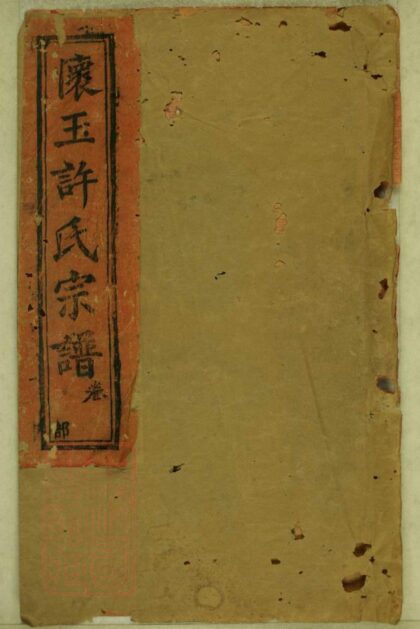 懷玉許氏宗譜卷